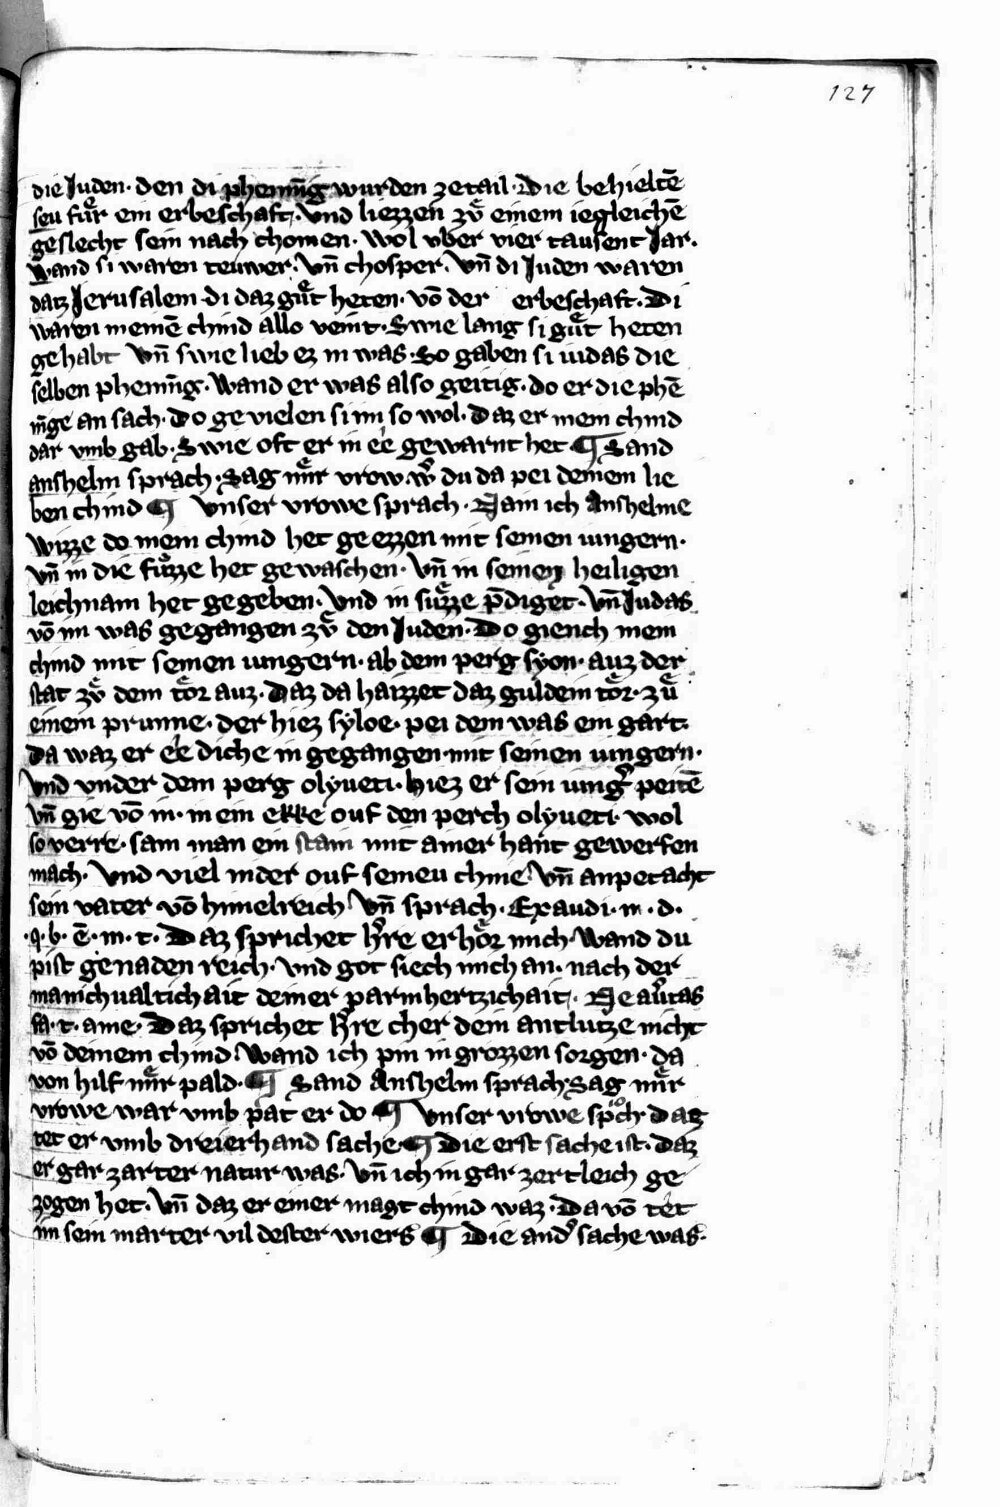 127
die Juden · den di phenīg wurden zetail · Die behieltē
seu fuͤr ein erbeschaft · Vnd liezzen zvͦ einem iegleichē
geslecht sein nach chomen · Wol vber vier tausent Jar ·
Wand si waren teuwer · Vn̄ chosper · Vn̄ di Juden waren
datz Jerusalem · di daz guͤt heten · vō der erbeschaft · Di
waren meinē chind allo veint · Swie lang si guͤt heten
gehabt Vn̄ swie lieb ez in was · So gaben si iudas die
selben phennīg · Wand er was also geitig · do er die phē
nīge an sach · Do gevielen si im so wol · Daz er mein chind
dar vmb gab · Swie oft er in ee gewarnt het ¶ Sand
anshelm sprach · Sag mir vrow · wͤr du da pei deinem lie
ben chind ¶ Vnser vrowe sprach · Nain ich Anshelme
Wizze do mein chind het geezzen mit seinen iungern ·
vn̄ in die fuͤzze het gewaschen · Vn̄ in seinen heiligen
leichnam het gegeben · Vnd in suͤzze p̄diget · Vn̄ Judas
vō im was gegangen zvͦ den Juden · Do giench mein
chind mit seinen iungern · ab dem perg syon · auz der
stat zvͦ dem toͤr auz · Daz da haizzet daz guldein toͤr · zuͦ
einem prunne · der hiez syloe · pei dem was ein gart ·
Da waz er ee diche in gegangen · mit seinen iungern ·
Vnd vnder dem perg olyueti · Hiez er sein iungͤ peitē
Vn̄ gie vō in · in ein ekke ouf den perch olyueti · wol
so verre · sam man ein stain mit ainer hant gewerfen
mach · Vnd viel nider ouf seineu chnie · Vn̄ anpetacht
sein vater vō himelreich Vn̄ sprach · Exaudi · m · d ·
· q · b · ē · m · t · Daz sprichet hͤre erhoͤr mich · Wand du
pist genaden reich · Vnd got siech mich an · nach der
manichualtichait deiner parmhertzichait · Ne au͛tas
fa · t · ame · Daz sprichet hͤre cher dein antlutze nicht
vō deinem chind · Wand ich pin in grozzen sorgen · da
von hilf mir pald · ¶ Sand Anshelm sprach · Sag mir
vrowe war vmb pat er do ¶ Vnser vrowe spͦch · Daz
tet er vmb dreierhand sache · ¶ Die erst sache ist · Daz
er gar zarter natur was · Vn̄ ich in gar zertleich ge
zogen het · Vn̄ daz er einer magt chind waz · Da vō tet
im sein marter vil dester wiers ¶ Die andͤ sache was ·